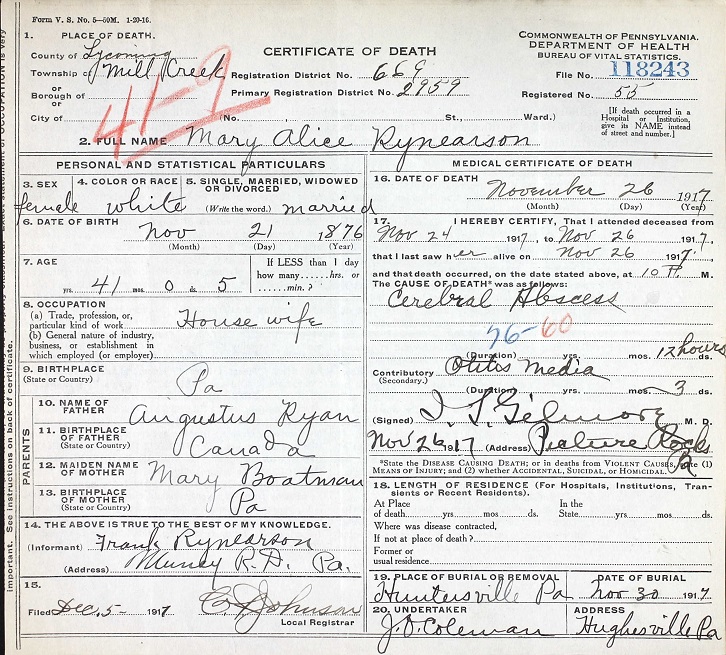 Form V. S. No. 5—50M. 1-20-16.
1. PLACE OF DEATH.
County of Lycoming
Township of Mill Creek
or
Borough of
or
City of (No. , St., Ward.)
41-9
CERTIFICATE OF DEATH
Registration District No. 669
Primary Registration District No. 2959
COMMONWEALTH OF PENNSYLVANIA.
DEPARTMENT OF HEALTH
BUREAU OF VITAL STATISTICS.
File No. 118243
Registered No. 55
[If death occurred in a
Hospital or Institution,
give its NAME instead
of street and number.]
2. FULL NAME Mary Alice Rynearson
PERSONAL AND STATISTICAL PARTICULARS
3. SEX 4. COLOR OR RACE 5. SINGLE, MARRIED, WIDOWED
OR DIVORCED
female white (Write the word.) married
6. DATE OF BIRTH Nov 21 1876
(Month) (Day) (Year)
7. AGE If LESS than 1 day
how many hrs. or
41 yrs. 0 mos. 5 ds. min.?
8. OCCUPATION
(a) Trade, profession, or
particular kind of work House wife
(b) General nature of industry,
business, or establishment in
which employed (or employer)
9. BIRTHPLACE
(State or Country) Pa
PARENTS
10. NAME OF
FATHER Angustus Ryan
11. BIRTHPLACE
OF FATHER
(State or Country) Canada
12. MAIDEN NAME
OF MOTHER Mary Boatman
13. BIRTHPLACE
OF MOTHER
(State or Country) Pa
14. THE ABOVE IS TRUE TO THE BEST OF MY KNOWLEDGE.
(Informant) Frank Rynearson
(Address) Muncy R.D. Pa.
15.
Filed Dec. 5- 1917 C. Johnson
Local Registrar
MEDICAL CERTIFICATE OF DEATH
16. DATE OF DEATH
November 26 1917
(Month) (Day) (Year)
17. I HEREBY CERTIFY, That I attended deceased from
Nov 24 1917, to Nov 26 1917,
that I last saw her alive on Nov 26 1917
and that death occurred, on the date stated above, at 10 M.
The CAUSE OF DEATH* was as follows:
Cerebral Abscess
76-60
(Duration) yrs. mos. 12 hours ds.
Contributory Otitis Media
(Secondary.)
(Duration) yrs. mos. 3 ds.
(Signed) Gilmore M. D.
Nov 26 1917 (Address) Picture Rocks
Pa
*State the DISEASE CAUSING DEATH; or in deaths from VIOLENT CAUSES, state (1)
MEANS OF INJURY; and (2) whether ACCIDENTAL, SUICIDAL, or HOMICIDAL.
18. LENGTH OF RESIDENCE (For Hospitals, Institutions, Tran-
sients or Recent Residents).
At Place In the
of death yrs. mos. ds. State yrs. mos. ds.
Where was disease contracted,
if not at place of death?
Former or
usual residence
19. PLACE OF BURIAL OR REMOVAL DATE OF BURIAL
Huntersville Pa Nov 30 1917
20. UNDERTAKER ADDRESS
J. D. Coleman Hughesville Pa
important. See instructions on back of certificate.
OCCUPATION is very